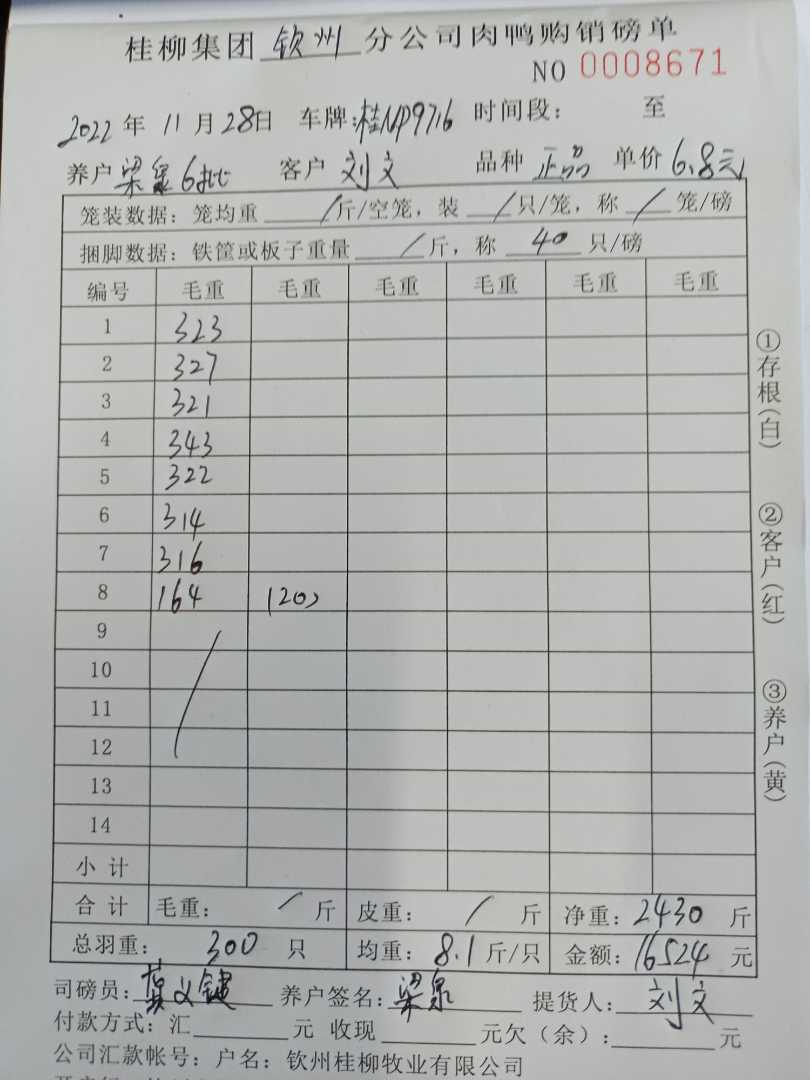 桂柳集团 钦州 分公司肉鸭购销磅单
NO 0008671
2022年 11月28日 车牌:桂NP9716 时间段: 至
养户 梁泉6批 客户 刘文 品种 正品 单价 6.8元
笼装数据: 笼均重 / 斤/空笼, 装 / 只/笼, 称 / 笼/磅
捆脚数据: 铁筐或板子重量 / 斤, 称 40 只/磅
编号 毛重 毛重 毛重 毛重 毛重 毛重
1 323
2 327
3 321
4 343
5 322
6 314
7 316
8 164 (20)
9
10
11
12
13
14
小计
合计 毛重: / 斤 皮重: / 斤 净重: 2430 斤
总羽重: 300 只 均重: 8.1 斤/只 金额: 16524 元
司磅员: 文键 养户签名: 梁泉 提货人: 刘文
付款方式: 汇 元 收现 元欠(余): 元
公司汇款帐号: 户名: 钦州桂柳牧业有限公司
①存根(白)
②客户(红)
③养户(黄)